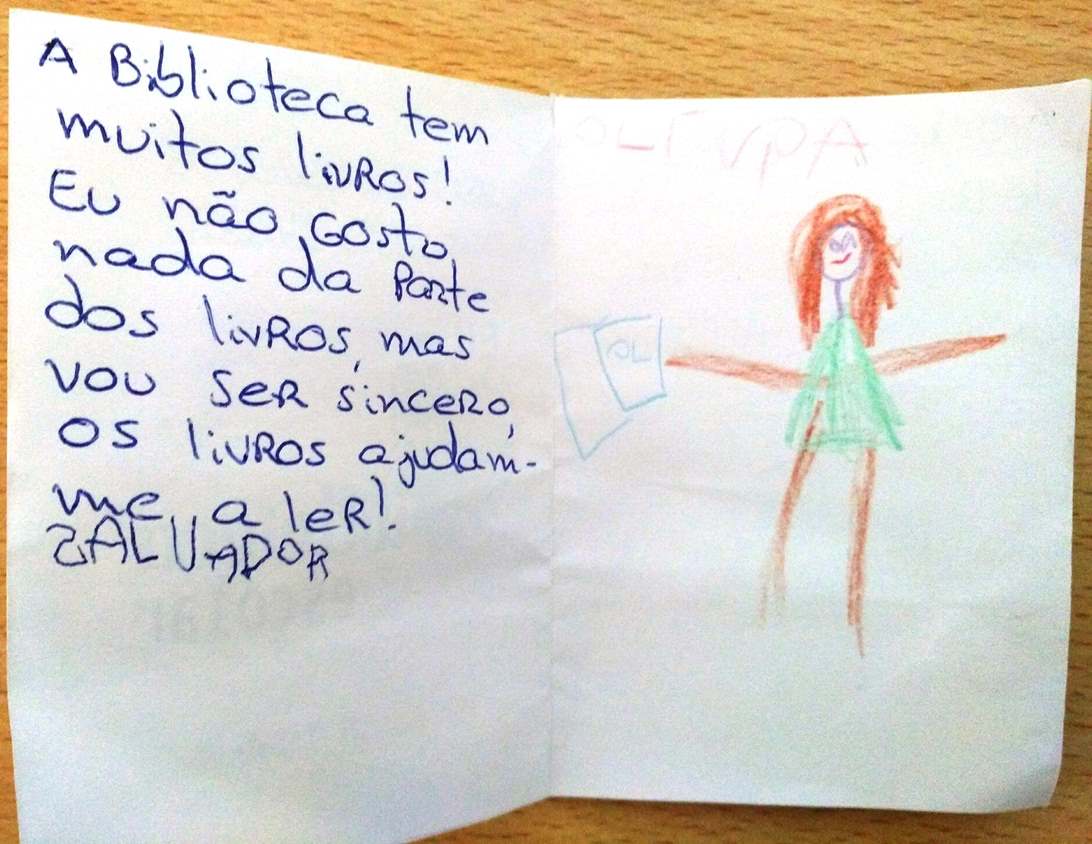 A Biblioteca tem
muitos livRos!
Eu não Gosto
nada da Parte
dos livRos, mas
vou seR sinceRo,
os livRos ajudam-
me a leR!.
SALVADOR
OL